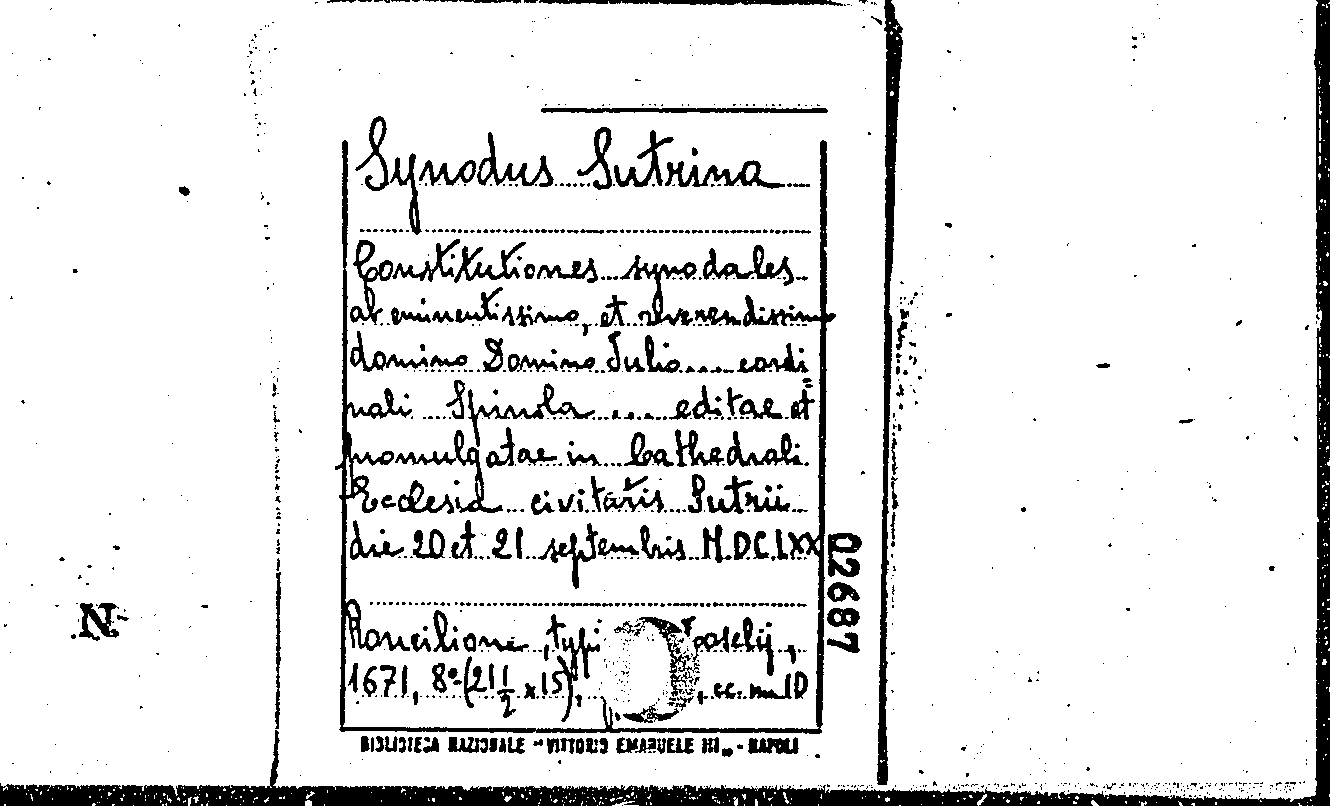 Synodus Sutrina
Constitutiones synodales
ab eminentissimo, et reverendissimo
domino Domino Julio... cardi
nali Spinola ... editae et
promulgatae in Cathedrali
Ecclesia civitatis Sutrii
die 20 et 21 septembris M.DC.LXX
Roncilione, typi
1671, 8º (21 1/2 x 15),
02687
N
BIBLIOTECA NAZIONALE "VITTORIO EMANUELE III" - NAPOLI